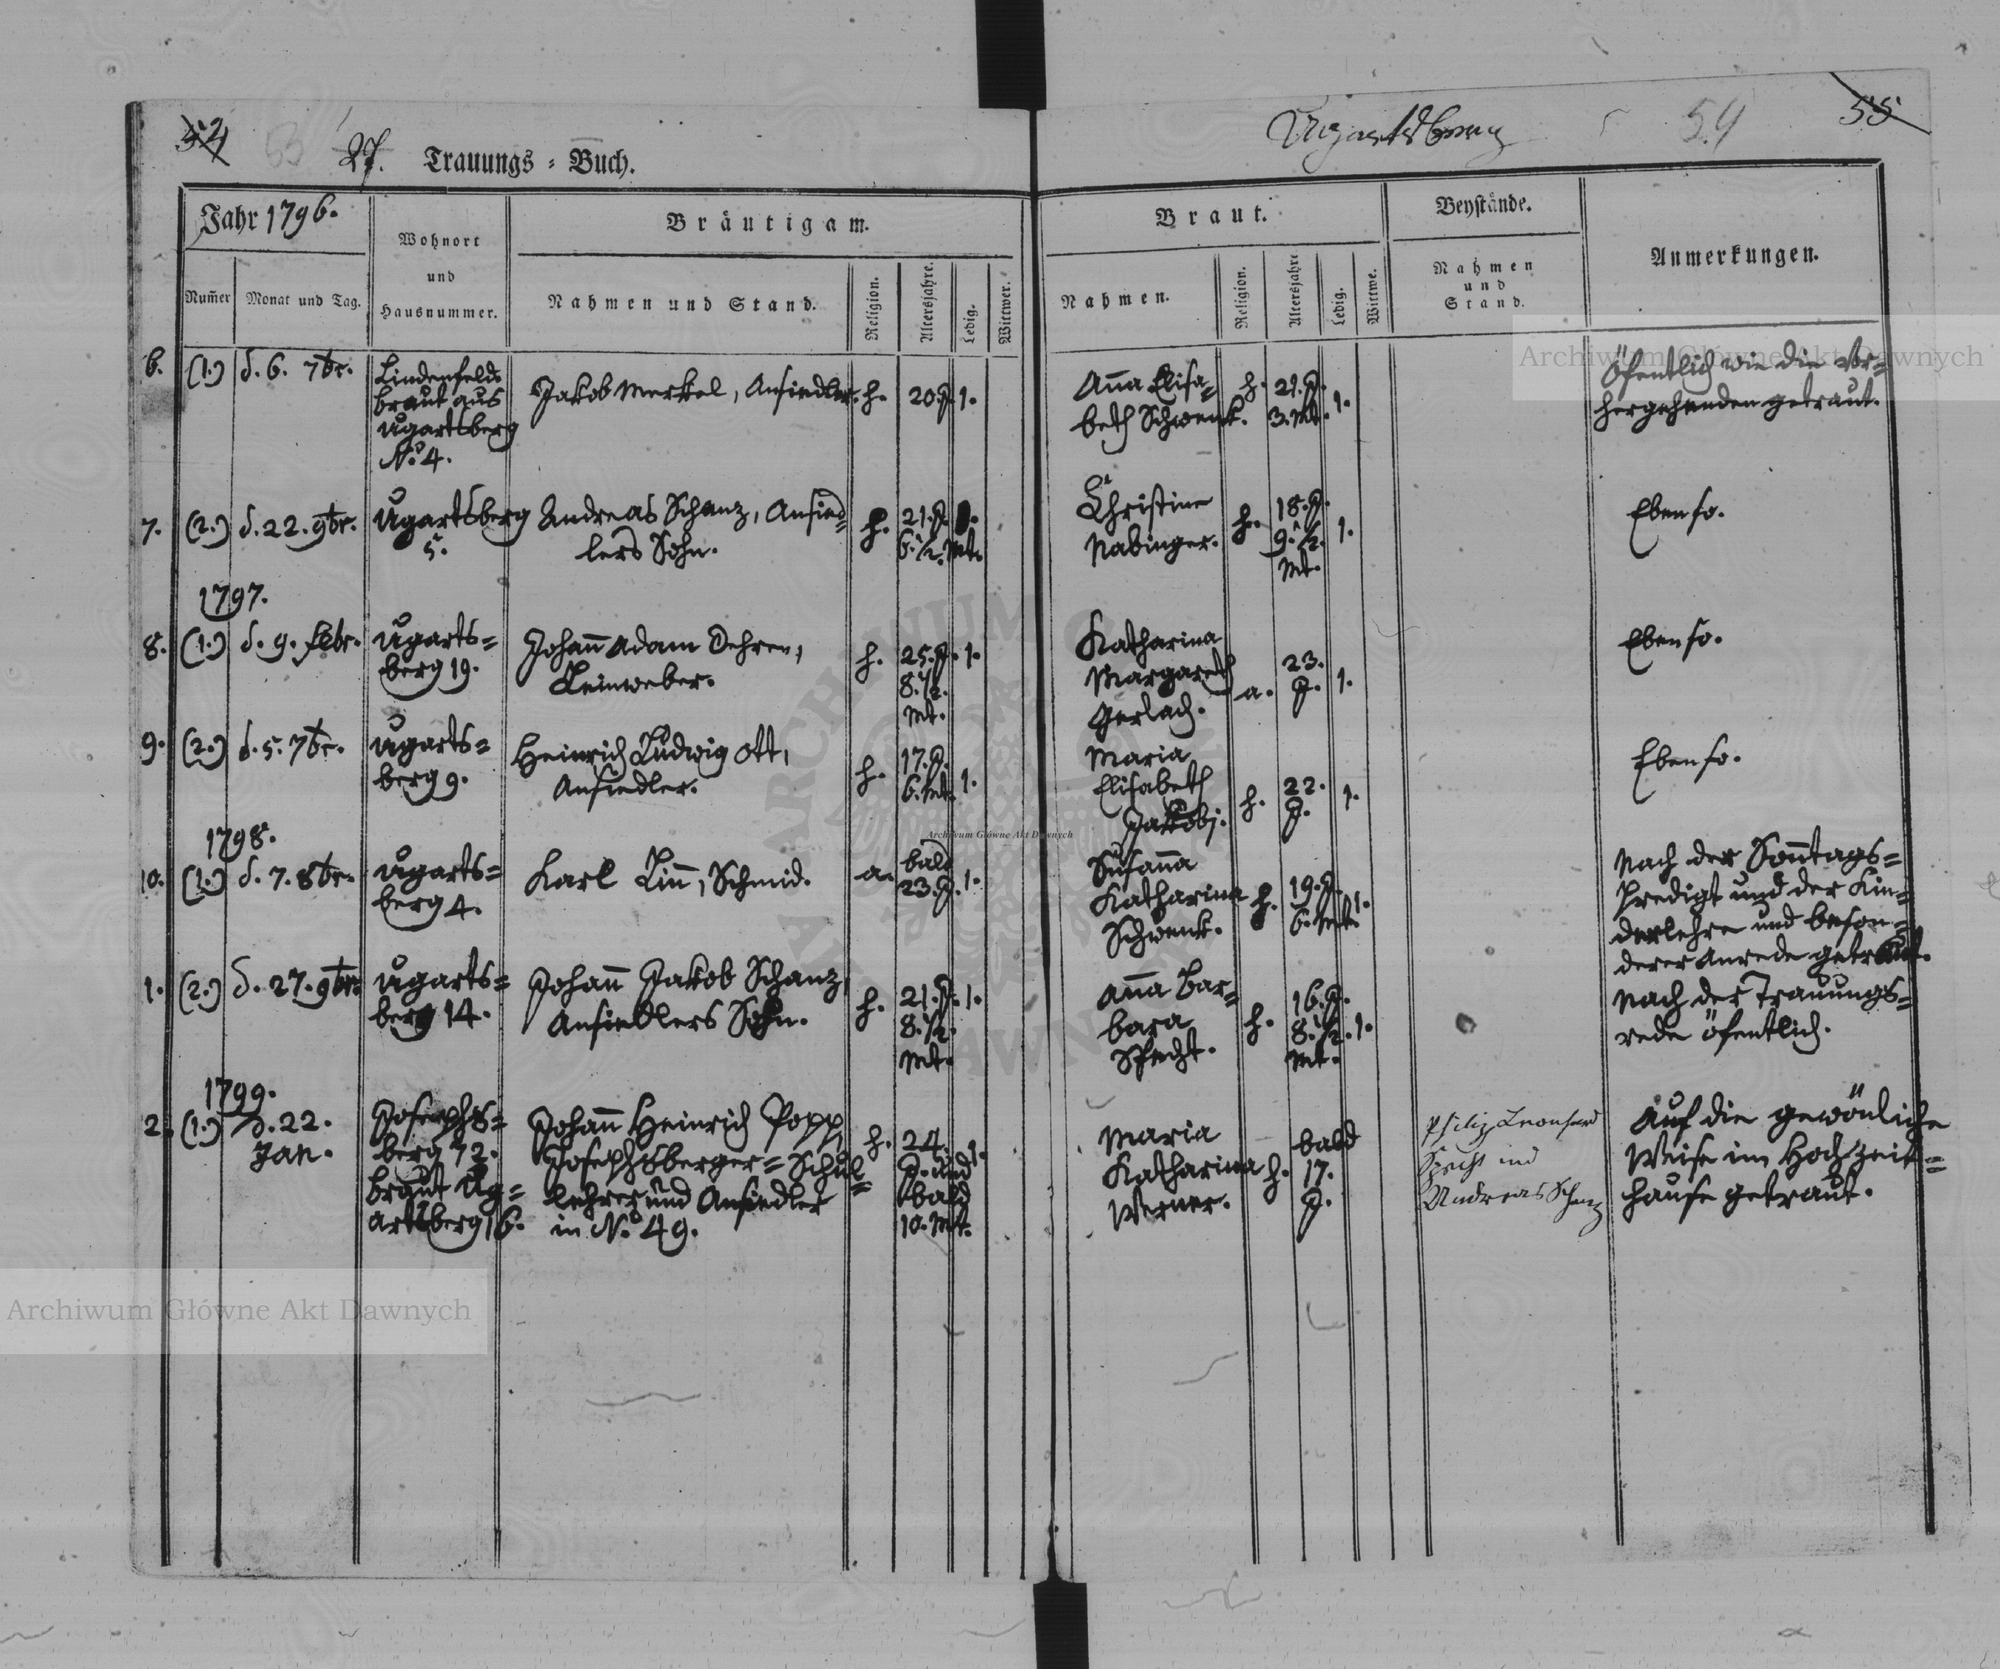 27. Trauungs-Buch.
Ugartsberg
54
55
Jahr 1796.
Wohnort
und
Hausnummer.
Bräutigam.
Braut.
Beystände.
Anmerkungen.
Num̅er
Monat und Tag.
Nahmen und Stand.
Religion.
Altersjahre.
Ledig.
Wittwer.
Nahmen.
Religion.
Altersjahre
Ledig.
Wittwe.
Nahmen
und
Stand.
6. (1.) d. 6. 7br.
Lindenfeld
braut aus
Ugartsberg
No. 4.
Jakob Merkel, Ansiedler.
h.
20 J.
1.
Anna Elisa=
beth Schwenk.
h.
21. J.
3. Mt.
1.
Öfentlich wie die Vor=
hergehenden getraut.
7. (2.) d. 22. 9br.
Ugartsberg
5.
Andreas Schanz, Ansied=
lers Sohn.
h.
21. J.
6. 1/2. Mt.
Christine
Nabinger.
h.
18. J.
9. 1/2.
Mt.
1.
Ebenso.
1797.
8. (1.) d. 9. Febr.
Ugarts=
berg 19.
Johan̅ Adam Dehren,
Leinweber.
h.
25. J.
8. 1/2.
Mt.
1.
Katharina
Margareth
Gerlach.
a.
23.
J.
1.
Ebenso.
9. (2.) d. 5. 7br.
Ugarts=
berg 9.
Heinrich Ludwig Ott,
Ansiedler.
h.
17. J.
6. Mt.
1.
Maria
Elisabeth
Jakobj.
h.
22.
J.
1.
Ebenso.
1798.
10. (1.) d. 7. 8br.
Ugarts=
berg 4.
Karl Lin̅, Schmid.
a.
bald
23. J.
1.
Susan̅a
Katharina
Schwenk.
h.
19. J.
6. Mt.
1.
Nach der Son̅tags=
Predigt und der Kin=
derlehre und beson=
derer Anrede getraut.
1. (2.) d. 27. 9br.
Ugarts=
berg 14.
Johan̅ Jakob Schanz,
Ansiedlers Sohn.
h.
21. J.
8. 1/2.
Mt.
1.
An̅a Bar=
bara
Specht.
h.
16. J.
8. 1/2.
Mt.
1.
Nach der Trauungs=
rede öfentlich.
1799.
2. (1.) d. 22.
Jan.
Josephs=
berg 72.
braut Ug=
artsberg 16.
Johan̅ Heinrich Popp,
Josephsberger=Schul=
lehrer und Ansiedler
in No. 49.
h.
24.
J. und
bald
10. Mt.
1.
Maria
Katharina
Werner.
h.
bald
17.
J.
Philip Leonhard
Specht und
Andreas Schanz
Auf die gewönliche
Weise im Hochzeit=
hause getraut.
Archiwum Główne Akt Dawnych
Archiwum Główne Akt Dawnych
Archiwum Główne Akt Dawnych